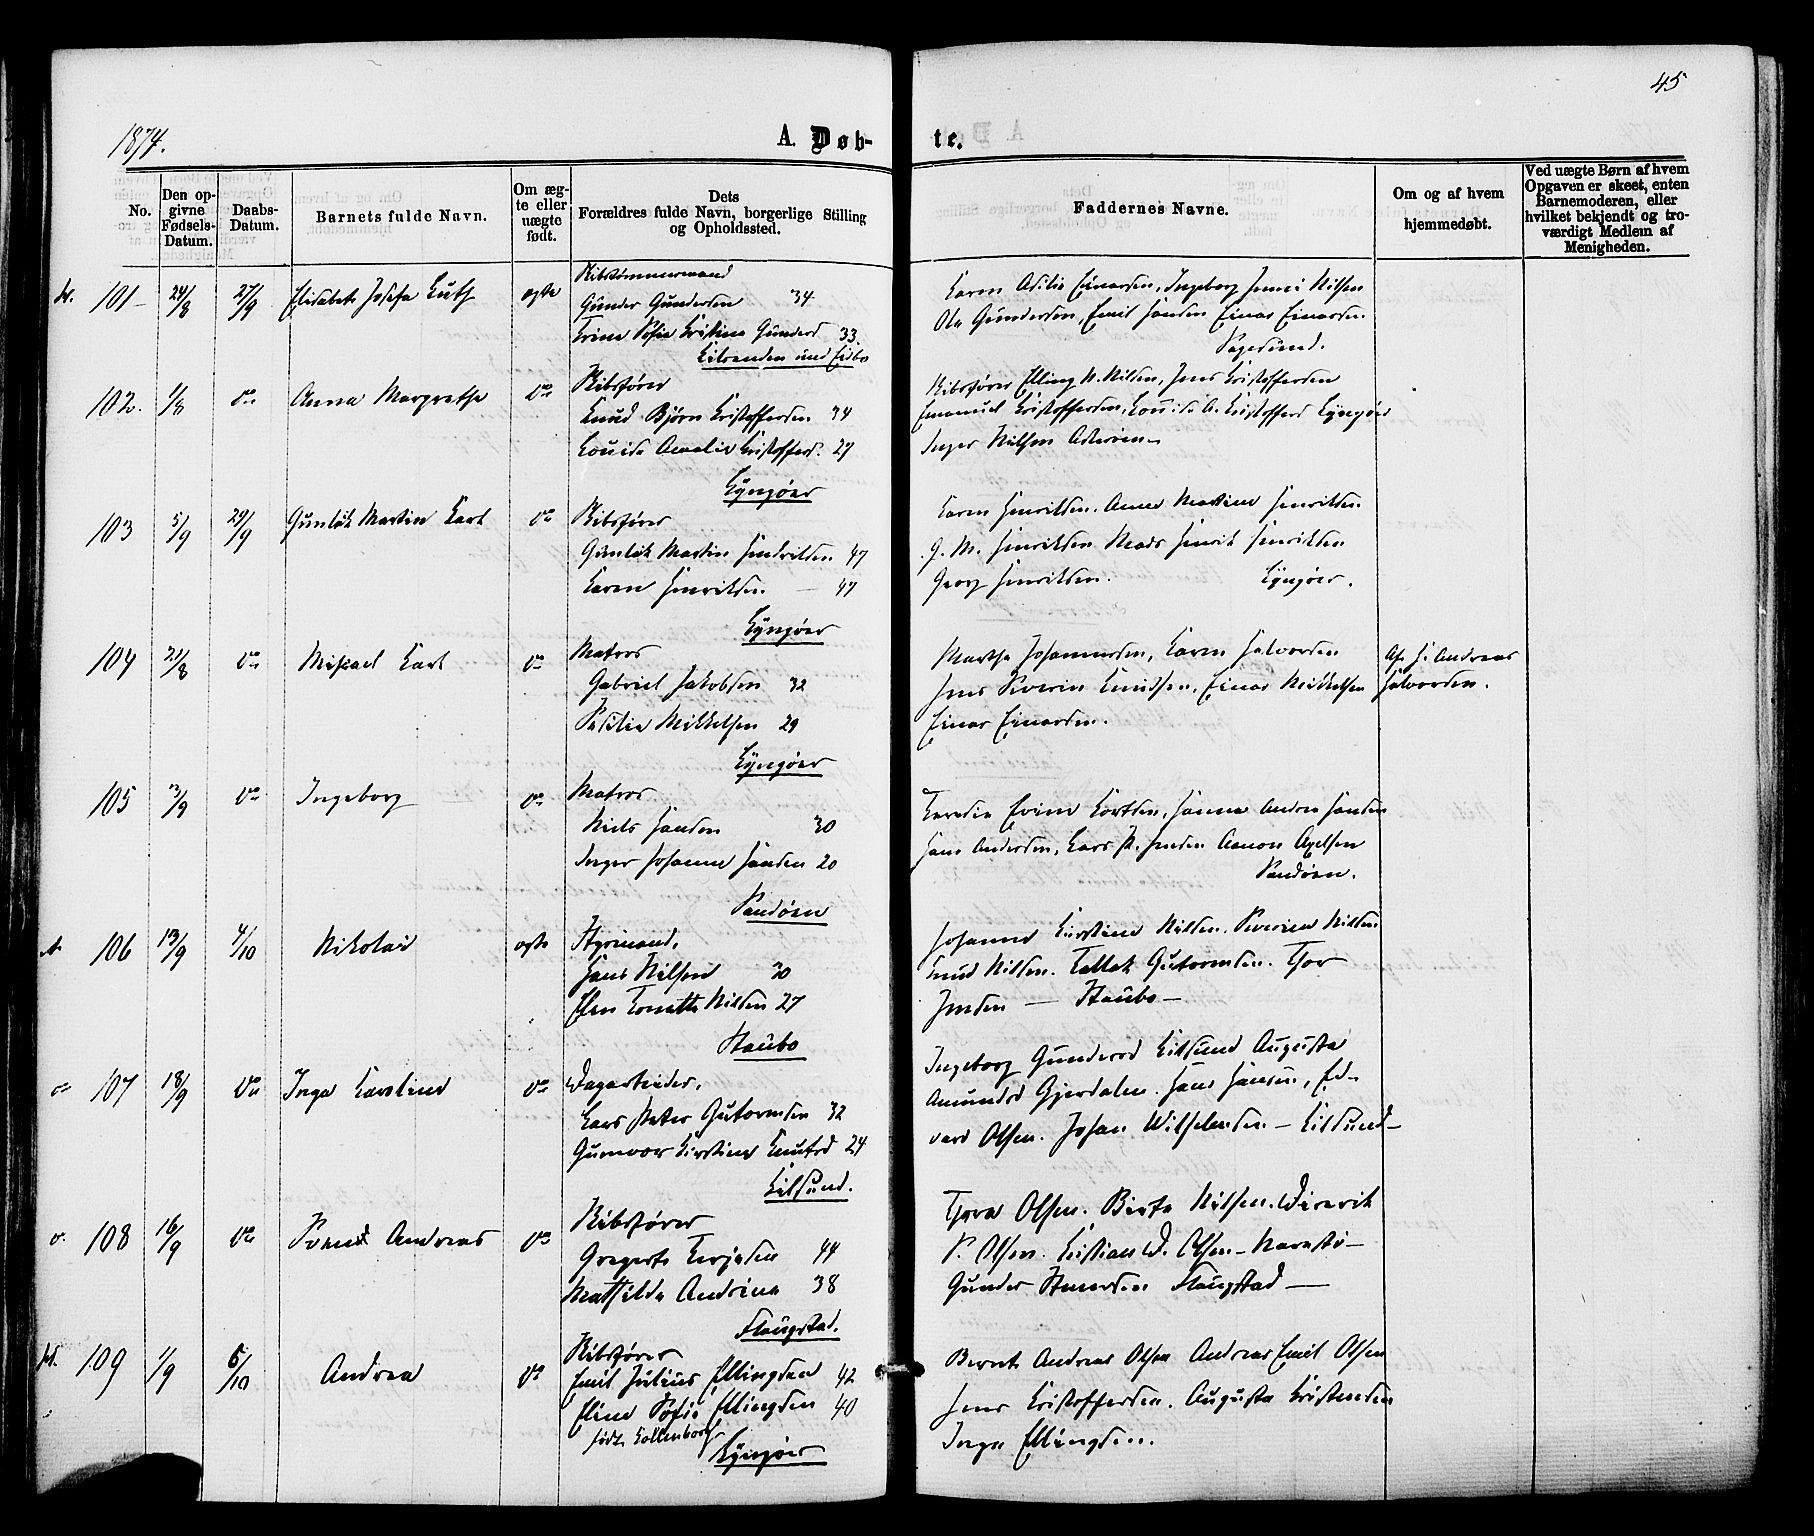 45
1874.
A. Døb-
te.
No.
Den op-
givne
Fødsels-
Datum.
Daabs-
Datum.
Barnets fulde Navn.
Om æg-
te eller
uægte
født.
Dets
Forældres fulde Navn, borgerlige Stilling
og Opholdssted.
Faddernes Navne.
Om og af hvem
hjemmedøbt.
Ved uægte Børn af hvem
Opgaven er skeet, enten
Barnemoderen, eller
hvilket bekjendt og tro-
værdigt Medlem af
Menigheden.
101
24/8
27/9
Elisabeth Josefa Luth
ægte
Skibstømmermand
Gunder Gundersen 34
Trine Sofie Kristine Gunders 33.
Karen Einarsen, Ingeborg Nilsen
Ole Gundersen, Emil Hansen Einar Einarsen
Sagesund.
102.
1/8
do
Anna Margrethe
do
Skibsfører
Knud Bjørn Kristoffersen 34
Lovise Amalie Kristoffers. 27
Lyngøer
Skibsfører Elling N. Nilsen, Jens Kristoffersen
Emanuel Kristoffersen, Lovise A. Kristoffers Lyngøer
Inger Nilsen Askerøen
103
5/9
29/9
Gunløk Martin Karl
do
Skibsfører
Gunløk Martin Hendriksen 47
Karen Henriksen. 47
Lyngøer
Karen Henriksen. Anne Martine Henriksen
G. M. Henriksen Mads Henrik Henriksen
Georg Henriksen. Lyngøer.
104
21/8
do
Mikael Karl
do
Matros
Gabriel Jakobsen 32
Mikkelsen 29
Lyngøer
Marthe Johannesen, Karen Halvorsen
Jens Severin Knudsen, Einar Mikkelsen
Einar Einarsen.
Af H. Andreas
Halvorsen.
105
13/9
do
Ingeborg
do
Matros
Niels Hansen 30
Inger Johanne Hansen 20
Sandøen
Hanna Andrea Hansen
Hans Andersen, Lars P. Jensen Aanon Axelsen
Sandøen.
106
13/9
4/10
Nikolai
ægte
Styrmand,
Hans Nilsen 30
Elen Tonette Nilsen 27
Staubo
Johanne Kirstine Nilsen. Severine Nilsen
Knud Nilsen. Tallak Gutormsen. Thor
Jensen — Staubo —
107
18/9
do
Inga Karoline
do
Dagarbeider,
Lars Peter Gutormsen 32
Gunvor Kirstine Knutsd 24
Kilsund.
Ingeborg Gundersd Kilsund Augusta
Amundsd Gjerdalen. Hans Hansen, Ed-
vard Olsen. Johan Wilhelmsen — Kilsund —
108
16/9
do
Svend Andreas
do
Skibsfører
Gregert Terjesen 44
Mathilde Andrine 38
Flaugstad.
Thora Olsen. Birte Nilsen. Diderik
S. Olsen. Kristian D. Olsen — Narestø —
Gunder Flaugstad —
109
1/9
5/10
Andrea
do
Skibsfører
Emil Julius Ellingsen 42
Eline Sofie Ellingsen 40
født Kallenborg
Lyngøer
Bernt Andreas Olsen Andreas Emil Olsen
Jens Kristoffersen. Augusta Kristensen
Inga Ellingsen.